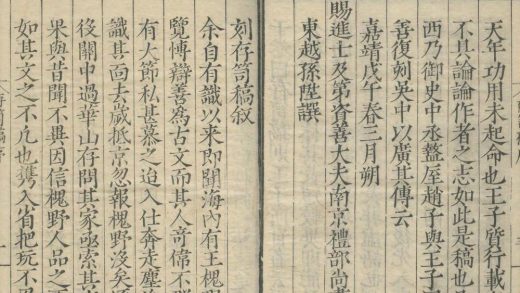 天年功用未起命也王子皆行載
不具論論作者之志如此是稿也
西乃御史中丞盩厔趙子與王子
善復刻吳中以廣其傳云
嘉靖戊午春三月朔
賜進士及第資善大夫南京禮部尚
東越孫陞譔
刻存笥稿叙
余自有識以来即聞海內有王槐
覽博辯善為古文而其人奇偉不
有大節私甚慕之迨入仕奔走塵
識其面去歲抵京忽報槐野沒矣
後關中過華山存問其家亟索其
果與昔聞不異因信槐野人品之
如其文之不凡也携入省把玩不